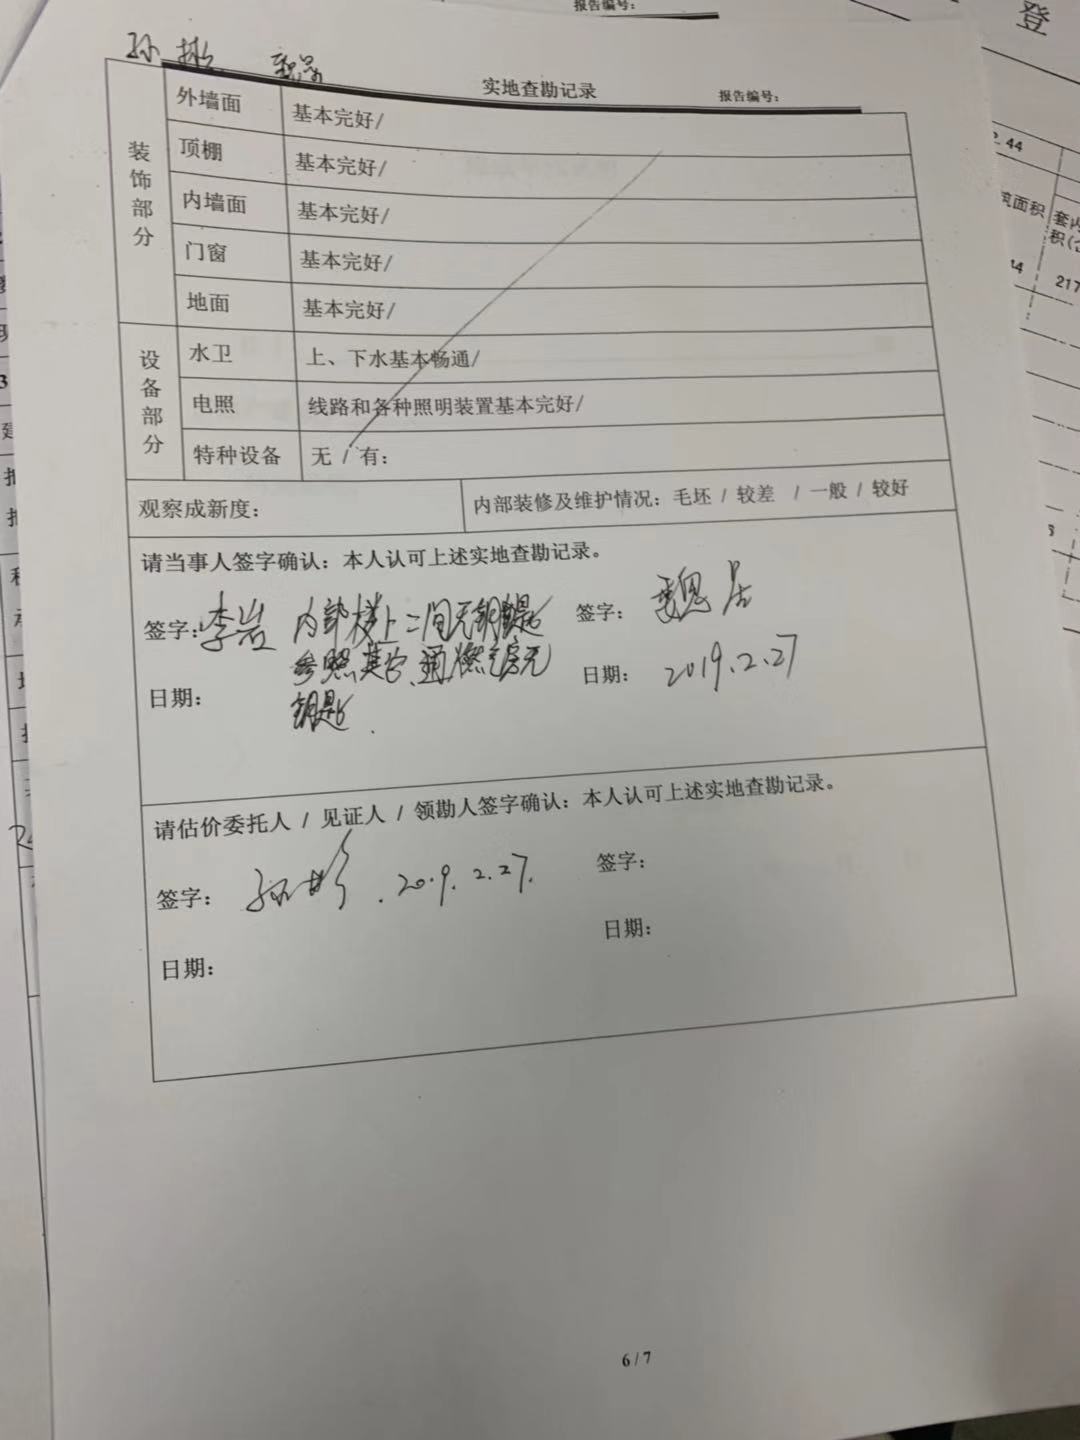 报告编号：
登
孙
实地查勘记录
报告编号：
装饰部分
外墙面 基本完好/
顶棚 基本完好/
内墙面 基本完好/
门窗 基本完好/
地面 基本完好/
设备部分
水卫 上、下水基本畅通/
电照 线路和各种照明装置基本完好/
特种设备 无 / 有：
观察成新度： 内部装修及维护情况：毛坯 / 较差 / 一般 / 较好
请当事人签字确认：本人认可上述实地查勘记录。
签字：李岩 内部楼上二间无钥匙 签字：魏
参照其它、通燃气房无
日期： 日期：2019.2.27
钥匙.
请估价委托人 / 见证人 / 领勘人签字确认：本人认可上述实地查勘记录。
签字：孙 .2019.2.27. 签字：
日期： 日期：
6 / 7
2.44
筑面积
套内
44
217